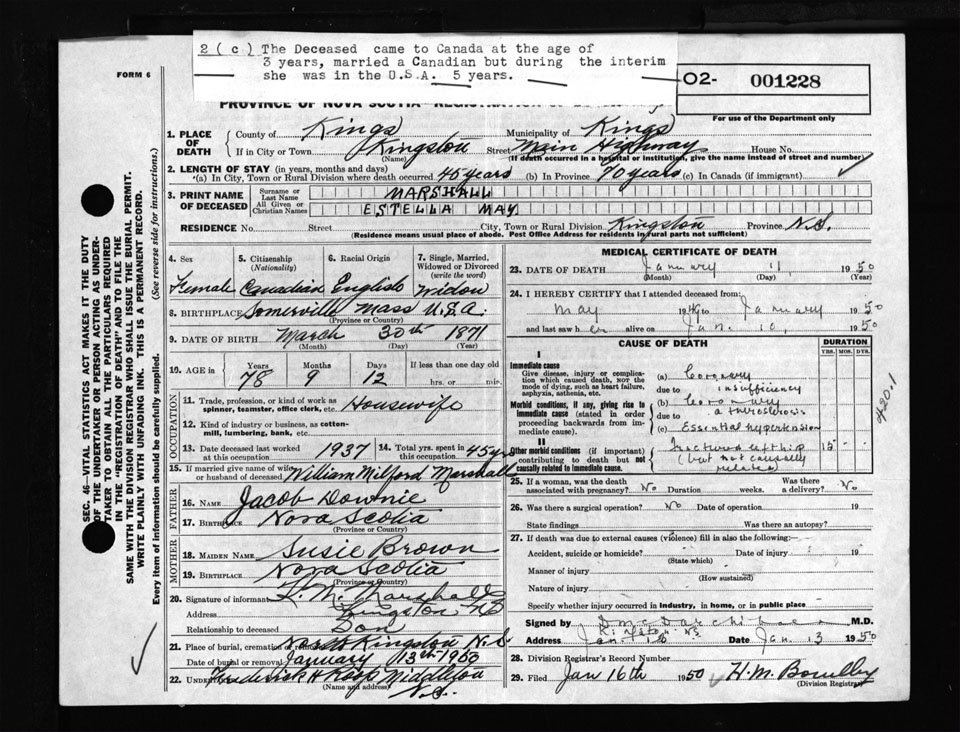 2 (c) The Deceased came to Canada at the age of
3 years, married a Canadian but during the interim
she was in the U.S.A. 5 years.
O2- 001228
For use of the Department only
FORM 6
PROVINCE OF NOVA SCOTIA
1. PLACE OF DEATH
County of Kings Municipality of Kings
If in City or Town Kingston Street Main Highway House No.
(Name) (If death occurred in a hospital or institution, give the name instead of street and number)
2. LENGTH OF STAY (in years, months and days)
(a) In City, Town or Rural Division where death occurred 45 years (b) In Province 70 years (c) In Canada (if immigrant)
3. PRINT NAME OF DECEASED
Surname or Last Name MARSHALL
All Given or Christian Names ESTELLA MAY
RESIDENCE No. Street City, Town or Rural Division Kingston Province N.S.
(Residence means usual place of abode. Post Office Address for residents in rural parts not sufficient)
4. Sex 5. Citizenship (Nationality) 6. Racial Origin 7. Single, Married, Widowed or Divorced (write the word)
Female Canadian English Widow
8. BIRTHPLACE Somerville Mass U.S.A.
(Province or Country)
9. DATE OF BIRTH March 30th 1871
(Month) (Day) (Year)
10. AGE in Years Months Days If less than one day
78 9 12 hrs. or min.
OCCUPATION
11. Trade, profession, or kind of work as spinner, teamster, office clerk, etc. Housewife
12. Kind of industry or business, as cotton-mill, lumbering, bank, etc.
13. Date deceased last worked at this occupation 1937 14. Total yrs. spent in this occupation 45 y
15. If married give name of wife or husband of deceased William Milford Marshall
FATHER
16. Name Jacob Downie
17. Birthplace Nova Scotia
(Province or Country)
MOTHER
18. MAIDEN NAME Susie Brown
19. BIRTHPLACE Nova Scotia
(Province or Country)
20. Signature of informant Marshall
Address Kingston NS
Relationship to deceased Son
21. Place of burial, cremation or removal North Kingston N.S
Date of burial or removal January 13th 1950
22. Frederick H Roop Middleton
(Name and address) N.S.
MEDICAL CERTIFICATE OF DEATH
23. DATE OF DEATH January 11, 1950
(Month) (Day)
24. I HEREBY CERTIFY that I attended deceased from:
May 19 to January 1950
and last saw her alive on Jan. 10, 1950
CAUSE OF DEATH DURATION
YRS. MOS. DYS.
I
Immediate cause
Give disease, injury or complication which caused death, not the mode of dying, such as heart failure, asphyxia, asthenia, etc.
(a) Coronary
due to insufficiency
Morbid conditions, if any, giving rise to immediate cause (stated in order proceeding backwards from immediate cause).
(b) Coronary
due to
(c) Essential hypertension
II
Other morbid conditions (if important) contributing to death but not causally related to immediate cause.
fractured left hip
(but not causally
related)
420-1
25. If a woman, was the death associated with pregnancy? No Duration weeks. Was there a delivery? No
26. Was there a surgical operation? No Date of operation 19
State findings Was there an autopsy?
27. If death was due to external causes (violence) fill in also the following:
Accident, suicide or homicide? Date of injury 19
(State which)
Manner of injury
(How sustained)
Nature of injury
Specify whether injury occurred in industry, in home, or in public place
Signed by M.D.
Address Kingston NS Date Jan. 13 1950
28. Division Registrar's Record Number
29. Filed Jan 16th 1950 H.M.
(Division Registrar)
SEC. 46—VITAL STATISTICS ACT MAKES IT THE DUTY
OF THE UNDERTAKER OR PERSON ACTING AS UNDER-
TAKER TO OBTAIN ALL THE PARTICULARS REQUIRED
IN THE "REGISTRATION OF DEATH" AND TO FILE THE
SAME WITH THE DIVISION REGISTRAR WHO SHALL ISSUE THE BURIAL PERMIT.
WRITE PLAINLY WITH UNFADING INK. THIS IS A PERMANENT RECORD.
Every item of information should be carefully supplied. (See reverse side for instructions.)